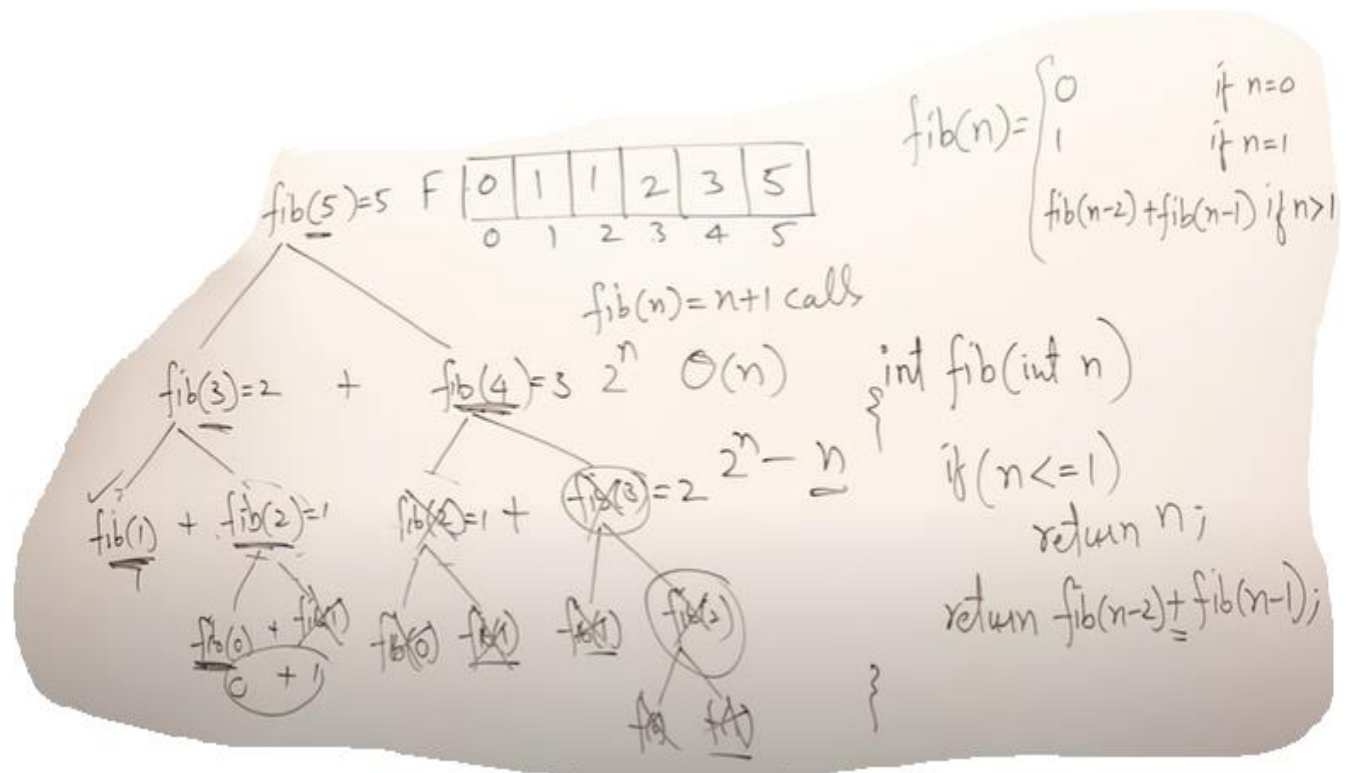 fib(n)= { 0 if n=0
1 if n=1
fib(n-2)+fib(n-1) if n>1
fib(5)=5 F 0 1 1 2 3 5
0 1 2 3 4 5
fib(n)=n+1 calls
fib(3)=2 + fib(4)=3 2ⁿ Θ(n)
fib(1) + fib(2)=1 fib(2)=1 + fib(3)=2 2ⁿ - n
1
fib(0) + fib(1) fib(0) fib(1) fib(1) fib(2)
0 + 1
int fib(int n)
{
if(n<=1)
return n;
return fib(n-2)+fib(n-1);
}